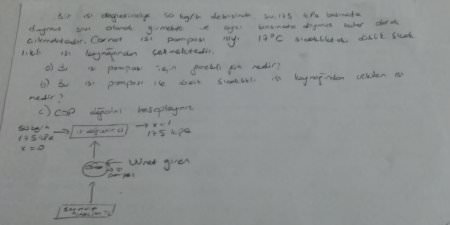 Bir ısı değiştiricisine 50 kg/h debisinde su, 175 kPa basınçta
doymuş sıvı olarak girmekte ve aynı basınçta doymuş buhar olarak
çıkmaktadır. Carnot ısı pompası ısıyı 17°C sıcaklıktaki düşük sıcak
lıklı ısı kaynağından çekmektedir.
a) Bu ısı pompası için gerekli güç nedir?
b) Bu ısı pompası ile düşük sıcaklıklı ısı kaynağından çekilen ısı
nedir?
c) COP değerini hesaplayınız
50 kg/h
175 kPa
x=0
ısı değiştirici
x=1
175 kPa
Wnet giren